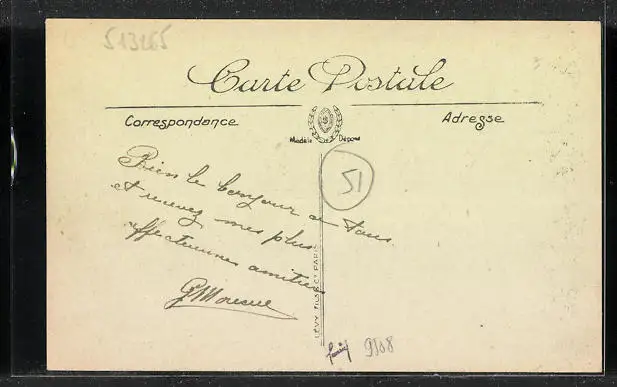 513265
Carte Postale
Correspondance
Adresse
Modèle Déposé
51
Bien le bonjour a tous
et recevez mes plus
affectueuses amitiés
LÉVY FILS & Cie PARIS